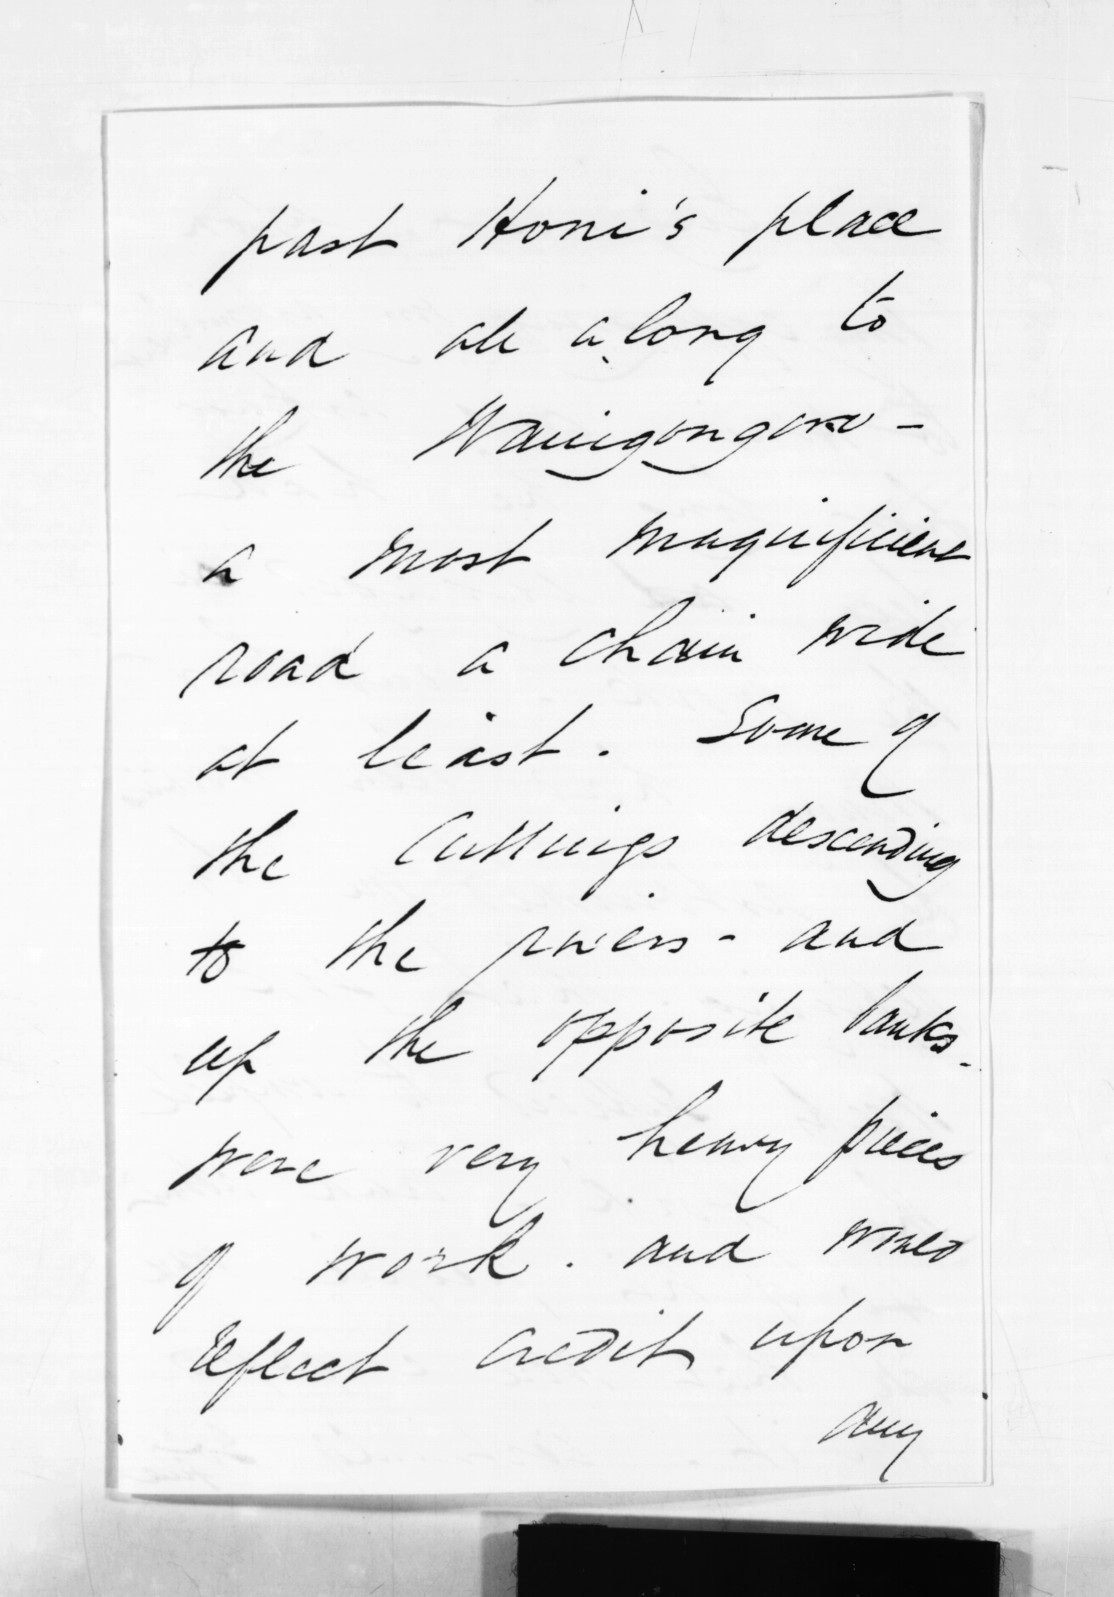 past Honi's place
and all along to
the Waingongoro -
a most magnificient
road a chain wide
at least. Some of
the cuttings descending
to the rivers - and
up the opposite banks.
were very heavy pieces
of work. and would
reflect credit upon
any